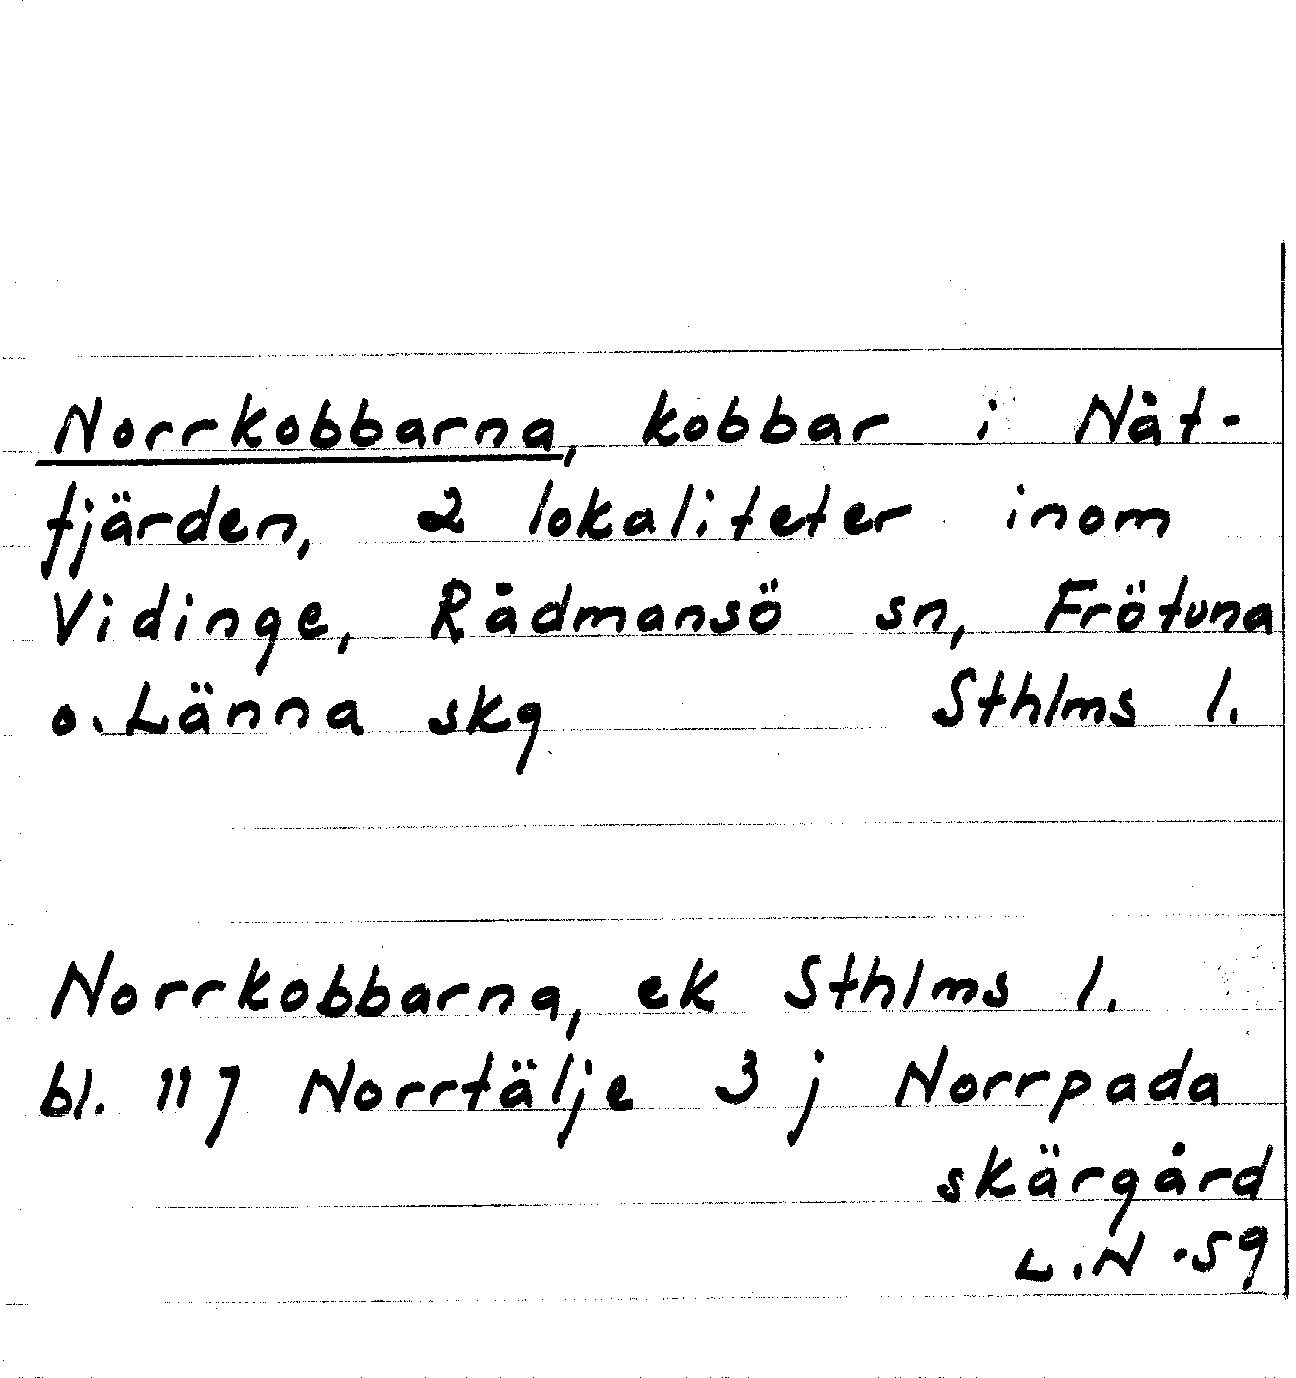 Norrkobbarna, kobbar i Nåt-
fjärden, 2 lokaliteter inom
Vidinge, Rådmansö sn, Frötuna
o. Länna skg Sthlms l.
Norrkobbarna, ek Sthlms l.
bl. 117 Norrtälje 3 j Norrpada
skärgård
L.N -59